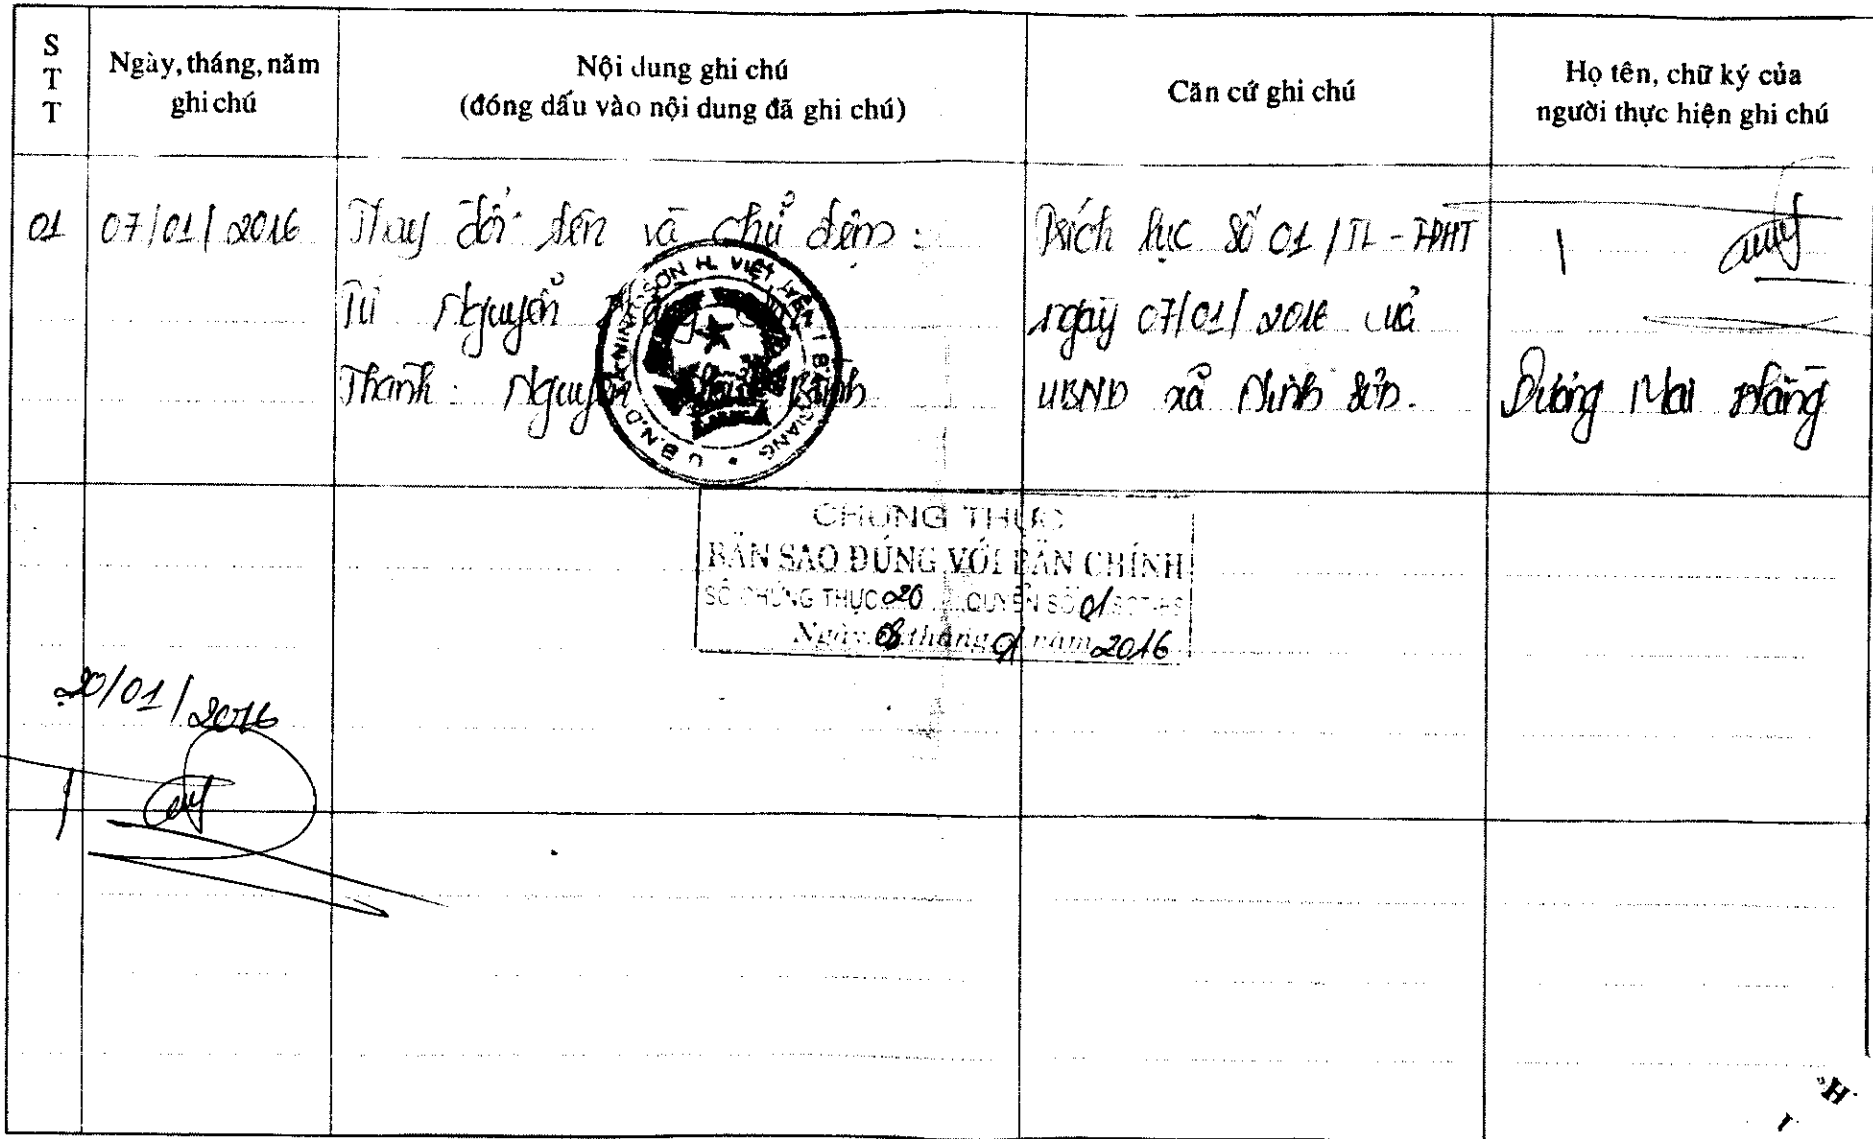 STT
Ngày, tháng, năm
ghi chú
Nội dung ghi chú
(đóng dấu vào nội dung đã ghi chú)
Căn cứ ghi chú
Họ tên, chữ ký của
người thực hiện ghi chú
01
07/01/2016
Thay đổi tên và chữ đệm:
Từ Nguyễn
Thành: Nguyễn
Trích lục số 01/TL-TPHT
ngày 07/01/2016 của
UBND xã Ninh Sơn.
Dương Mai
U.B.N.D XÃ NINH SƠN H. VIỆT YÊN T BẮC GIANG
CHỨNG THỰC
BẢN SAO ĐÚNG VỚI BẢN CHÍNH
SỐ CHỨNG THỰC 20 QUYỂN SỐ 01
Ngày 08 tháng 01 năm 2016
20/01/2016